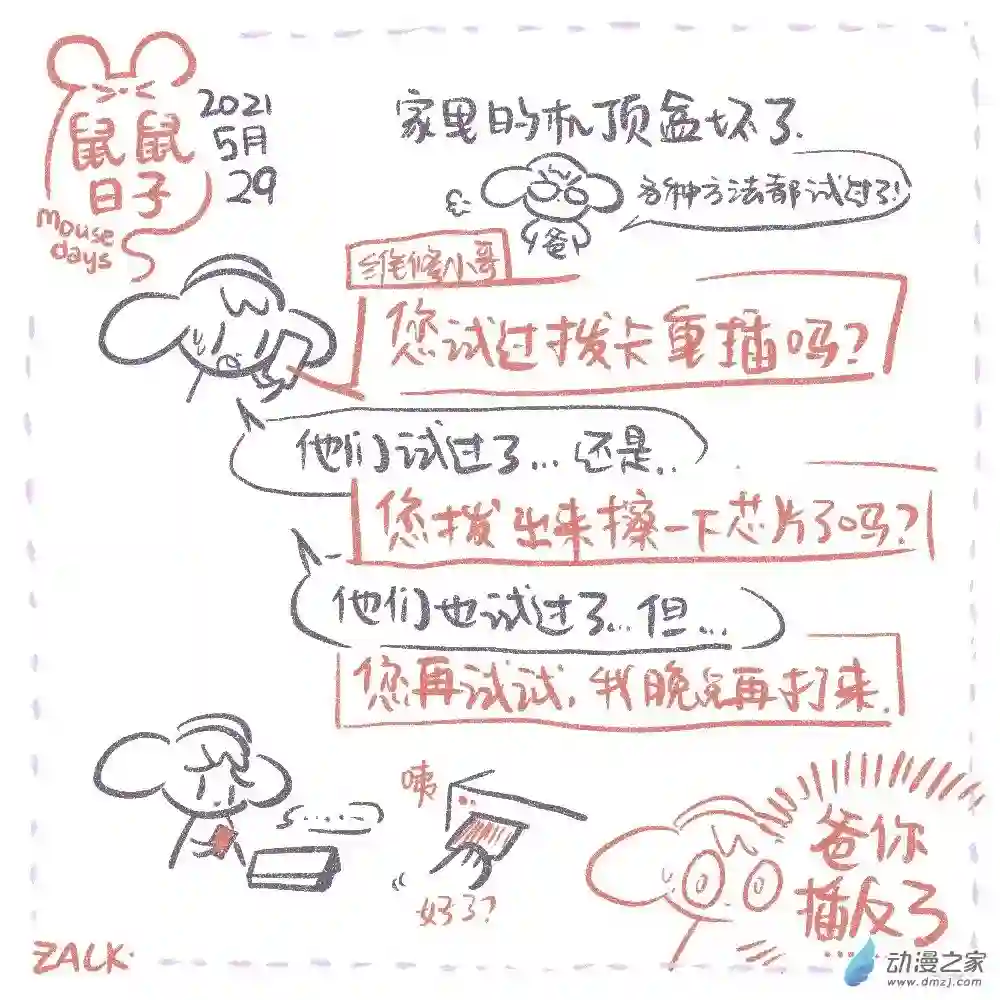 鼠鼠
日子
mouse
days
2021
5月
29
家里的机顶盒坏了.
各种方法都试过了!
爸
维修小哥
您试过拨卡重插吗?
他们试过了...还是..
您拨出来擦一下芯片了吗?
他们也试过了...但...
您再试试,我晚点再打来.
咦
好了?
爸你
插反了
......
ZALK.
动漫之家
www.dmzj.com